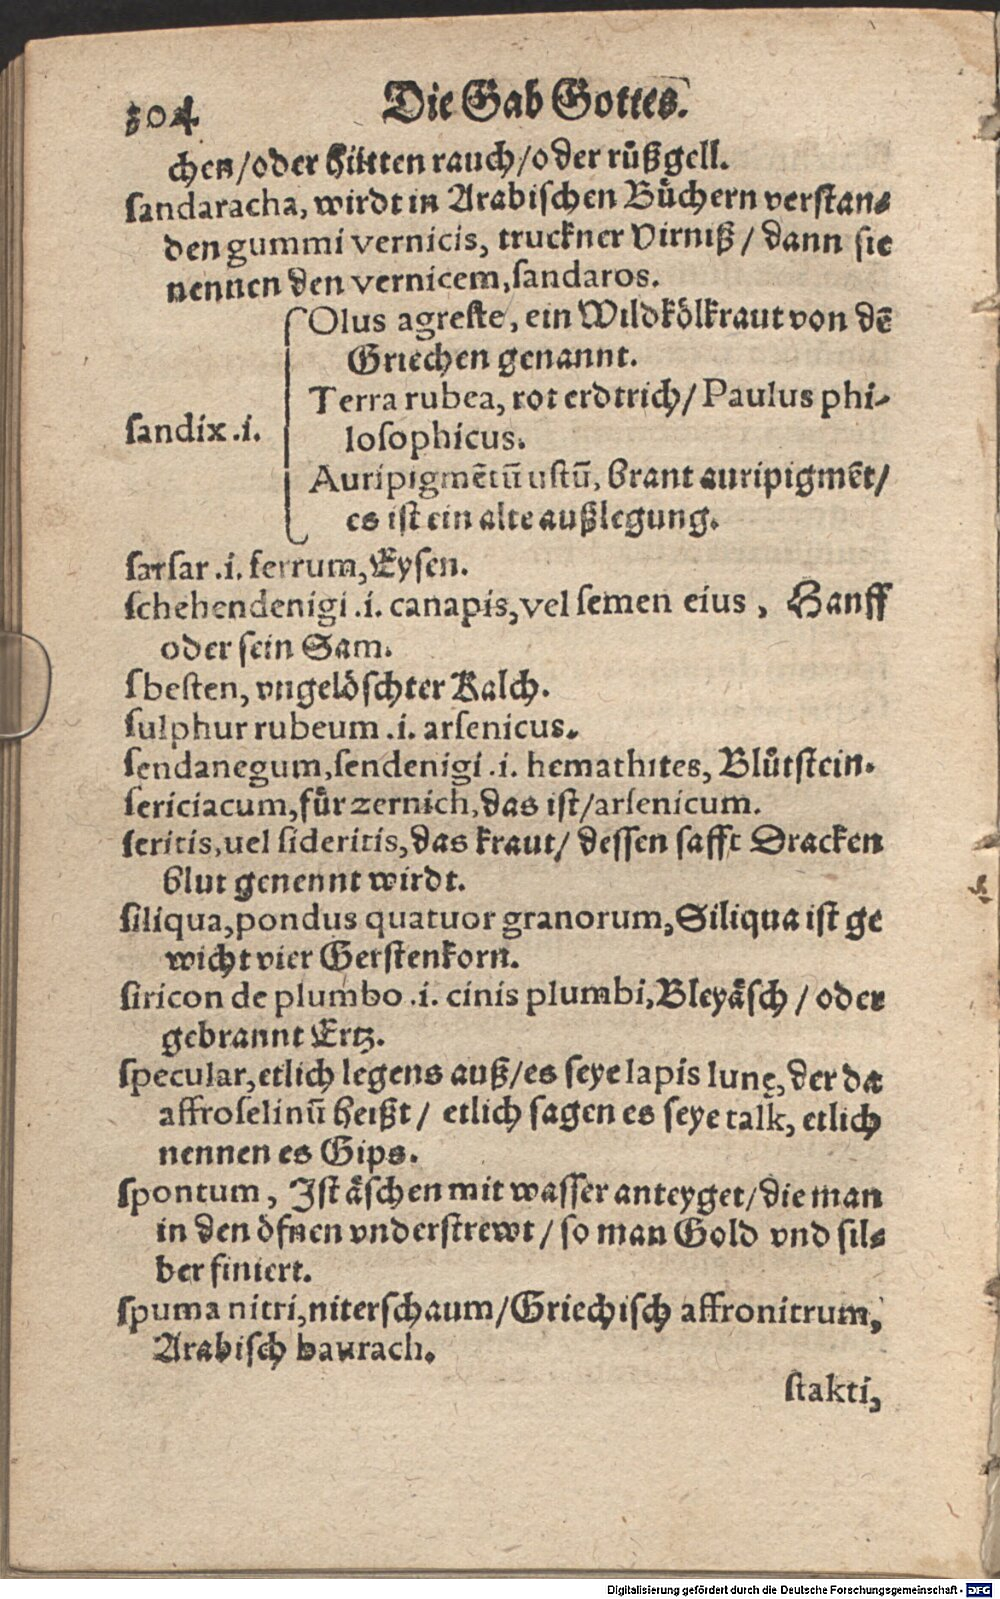 304
Die Gab Gottes.
chen/oder hütten rauch/oder růßgell.
sandaracha, wirdt in Arabischen Bůchern verstan-
den gummi vernicis, truckner Virniß / dann sie
nennen den vernicem, sandaros.
Olus agreste, ein Wildkölkraut von dē
Griechen genannt.
Terra rubea, rot erdtrich/ Paulus phi-
sandix .i.
losophicus.
Auripigmētū ustū, brant auripigmēt/
es ist ein alte außlegung.
sarsar .i. ferrum, Eysen.
schehendenigi .i. canapis, vel semen eius , Hanff
oder sein Sam.
sbesten, vngelöschter Kalch.
sulphur rubeum .i. arsenicus.
sendanegum, sendenigi .i. hemathites, Blůtstein.
sericiacum, fůr zernich, das ist/arsenicum.
seritis, uel sideritis, das kraut/ dessen safft Dracken
blut genennt wirdt.
siliqua, pondus quatuor granorum, Siliqua ist ge
wicht vier Gerstenkorn.
siricon de plumbo .i. cinis plumbi, Bleyäsch / oder
gebrannt Ertz.
specular, etlich legens auß/es seye lapis lunę, der da
affroselinū heißt/ etlich sagen es seye talk, etlich
nennen es Gips.
spontum , Ist äschen mit wasser anteyget/die man
in den öfnen vnderstrewt / so man Gold vnd sil-
ber finiert.
spuma nitri, niterschaum/Griechisch affronitrum,
Arabisch baurach.
stakti,
Digitalisierung gefördert durch die Deutsche Forschungsgemeinschaft - DFG